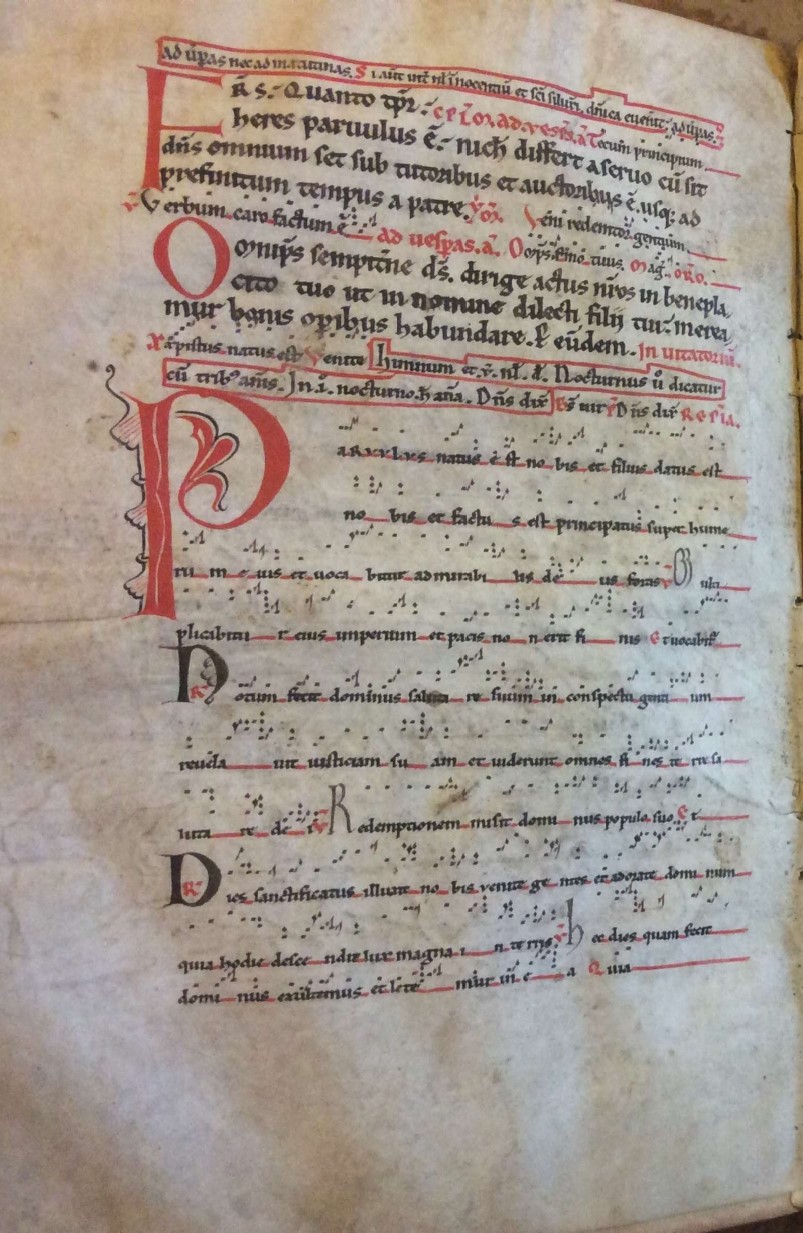 ad ūpas nec ad matutinas. Si aūt utr nł innocentiū et sc̄i siluri. dn̄ica euen̄it. ad ūpas.
FR̄S. Quanto tp̄r.
heres paruulus ē. nich differt a seruo cū sit
dn̄s omnium set sub tutoribus et auctoribus ē. usq; ad
prefinitum tempus a patre. Veni redemtor gentium.
Verbum caro factum ē. ad uesp̄as. a. Om̄ps sermo tuus. Mag. or̄o.
Omip̄s sempit̄ne ds̄. dirige actus nr̄os in benepla
cito tuo ut in nomine dilecti filij tui. merea
mur bonis op̄ibus habundare. P eūdem. In uitatoriū.
Xapistus natus est Venite himnum et v̄. nł. st. Nocturnus ū dicatur
cū trib9 an̄is. In .i. nocturno. h an̄a. Dn̄s dix̄ Ps̄ Dn̄s dix̄
PARVVLVS natus ē st no bis et filius datus est
no bis et factu s est principatus super hume
ru m e uis et uoca bitur admirabi lis de us fortis Multi
plicabitu r eius imperium et pacis no n erit fi nis Et uocabit
Notum fecit dominus saluta re suum in conspectu genti um
reuela uit iusticiam su am et uiderunt omnes fi nes te rre sa
luta re de i Redemptionem misit domi nus populo suo Et
Dies sanctificatus illuxit no bis uenite ge ntes et adorate domi num
quia hodie desce ndit lux magna i n te rris hec dies quam fecit
domi nus exultemus et lete mur in e a Quia